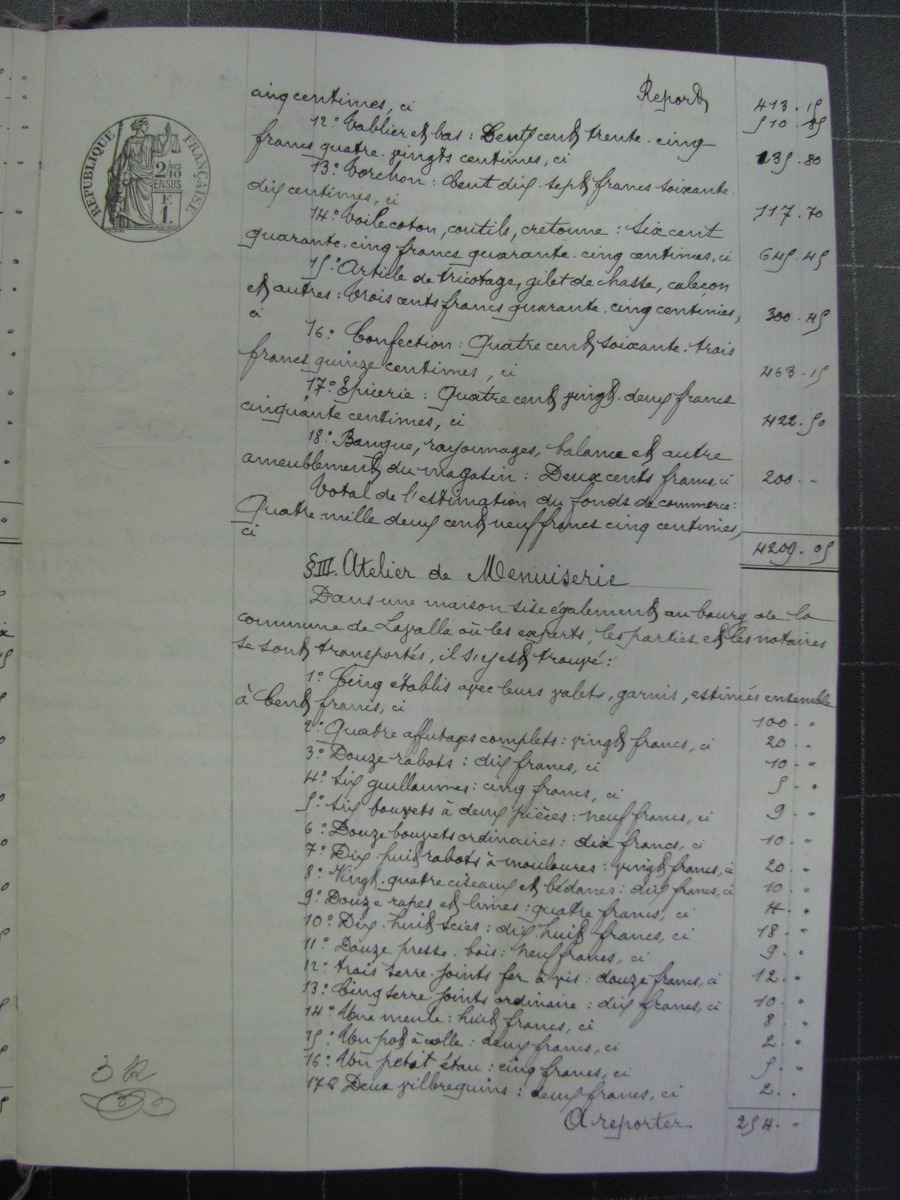 Report 413.15
cinq centimes, ci 510.85
12° Tablier et bas : Cent trente-cinq
francs quatre-vingts centimes, ci 135.80
13° Torchon : Cent dix-sept francs soixante-
dix centimes, ci 117.70
14° Toile coton, coutils, cretonne : Six cent
quarante-cinq francs quarante-cinq centimes, ci 645.45
15° Article de tricotage, gilet de chasse, caleçon
et autres : trois cents francs quarante-cinq centimes,
ci 300.45
16° Confection : Quatre cent soixante-trois
francs quinze centimes, ci 463.15
17° Epicerie : Quatre cent vingt-deux francs
cinquante centimes, ci 422.50
18° Banque, rayonnages, balance et autre
ameublement du magasin : Deux cents francs, ci 200 "
Total de l'estimation du fonds de commerce :
Quatre mille deux cent neuf francs cinq centimes,
ci 4209.05
§ III. Atelier de Menuiserie
Dans une maison sise également au bourg de la
commune de Lavalla où les experts, les parties et les notaires
se sont transportés, il s'y est trouvé :
1° Cinq établis avec leurs valets, garnis, estimés ensemble
à Cent francs, ci 100 "
2° Quatre affutages complets : vingt francs, ci 20 "
3° Douze rabots : dix francs, ci 10 "
4° Six guillaumes : cinq francs, ci 5 "
5° Six bouvets à deux pièces : neuf francs, ci 9 "
6° Douze bouvets ordinaires : dix francs, ci 10 "
7° Dix-huit rabots à moulures : vingt francs, ci 20 "
8° Vingt-quatre ciseaux et bédanes : dix francs, ci 10 "
9° Douze rapes et limes : quatre francs, ci 4 "
10° Dix-huit scies : dix huit francs, ci 18 "
11° Douze presse-bois : neuf francs, ci 9 "
12° trois serre-joints fer à vis : douze francs, ci 12 "
13° Cinq serre-joints ordinaire : dix francs, ci 10 "
14° Une meule : huit francs, ci 8 "
15° Un pot à colle : deux francs, ci 2 "
16° Un petit étau : cinq francs, ci 5 "
17° Deux vilbrequins : deux francs, ci 2 "
A reporter 254 "
RÉPUBLIQUE FRANÇAISE
2/10
EN SUS
F.
1.